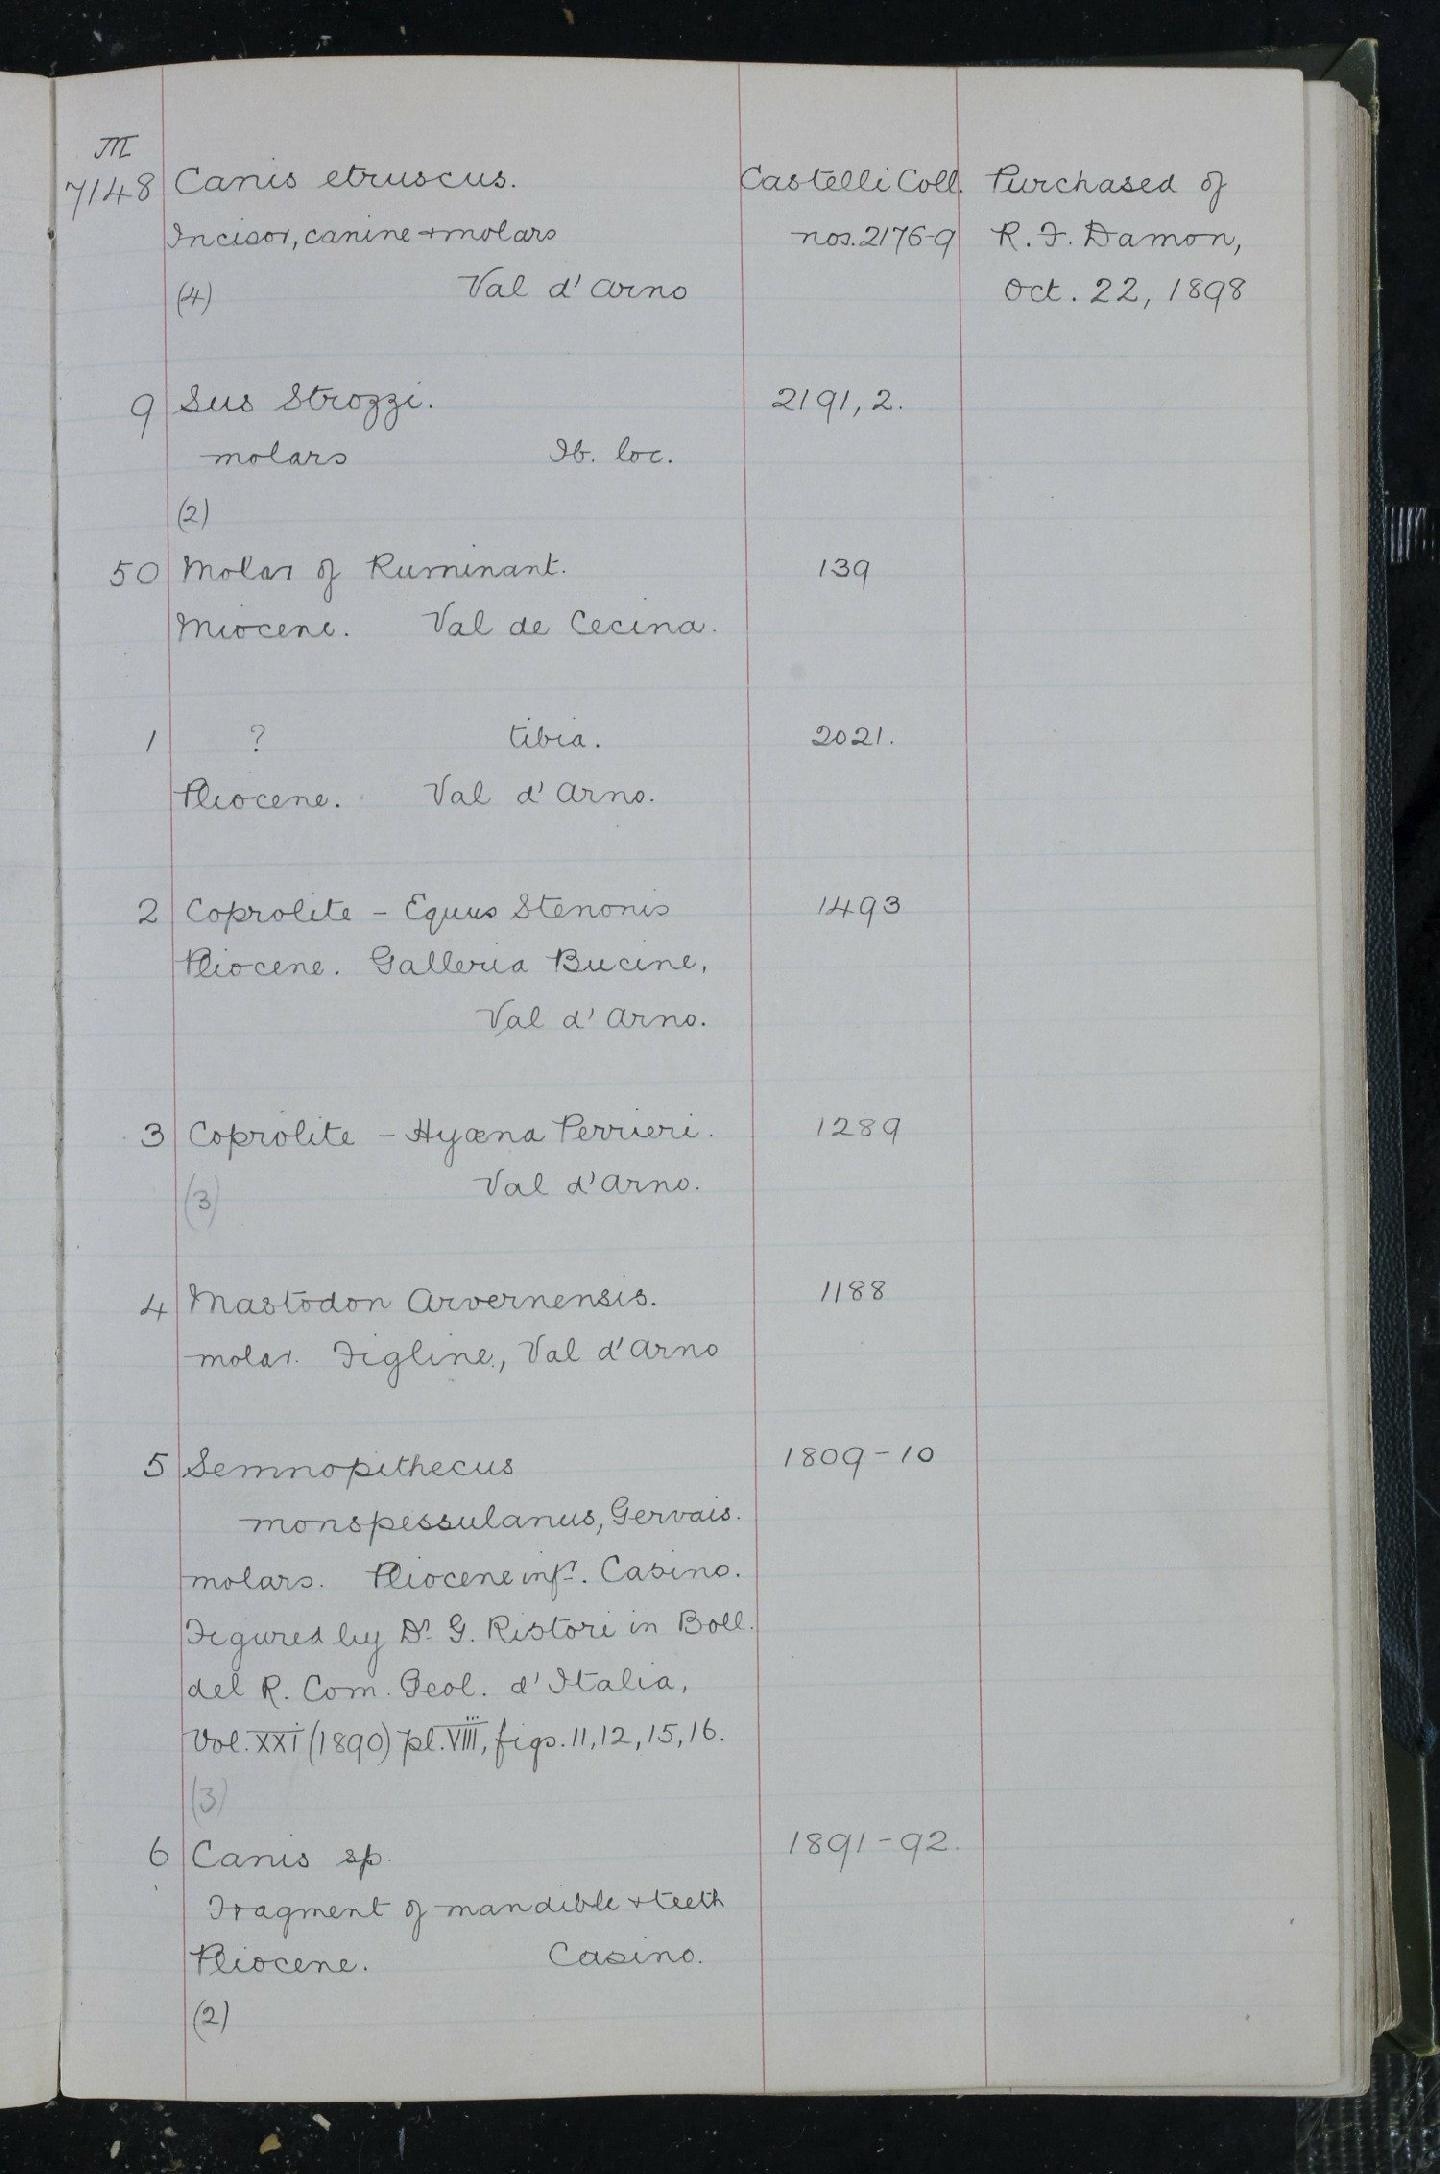 M
7148 Canis etruscus. Castelli Coll. Purchased of
Incisor, canine + molars nos. 2176-9 R. F. Damon,
(4) Val d' Arno Oct. 22, 1898
9 Sus Strozzi. 2191, 2.
molars Ib. loc.
(2)
50 Molar of Ruminant. 139
Miocene. Val de Cecina.
1 ? tibia. 2021.
Pliocene. Val d' Arno.
2 Coprolite - Equus Stenonis 1493
Pliocene. Galleria Bucine,
Val d' Arno.
3 Coprolite - Hyæna Perrieri. 1289
(3) Val d' Arno.
4 Mastodon Arvernensis. 1188
molar. Figline, Val d' Arno
5 Semnopithecus 1809-10
monspessulanus, Gervais.
molars. Pliocene infr. Casino.
Figured by Dr. G. Ristori in Boll.
del R. Com. Geol. d' Italia,
Vol. XXI (1890) pl. VIII, figs. 11, 12, 15, 16.
(3)
6 Canis sp. 1891-92.
Fragment of mandible + teeth
Pliocene. Casino.
(2)